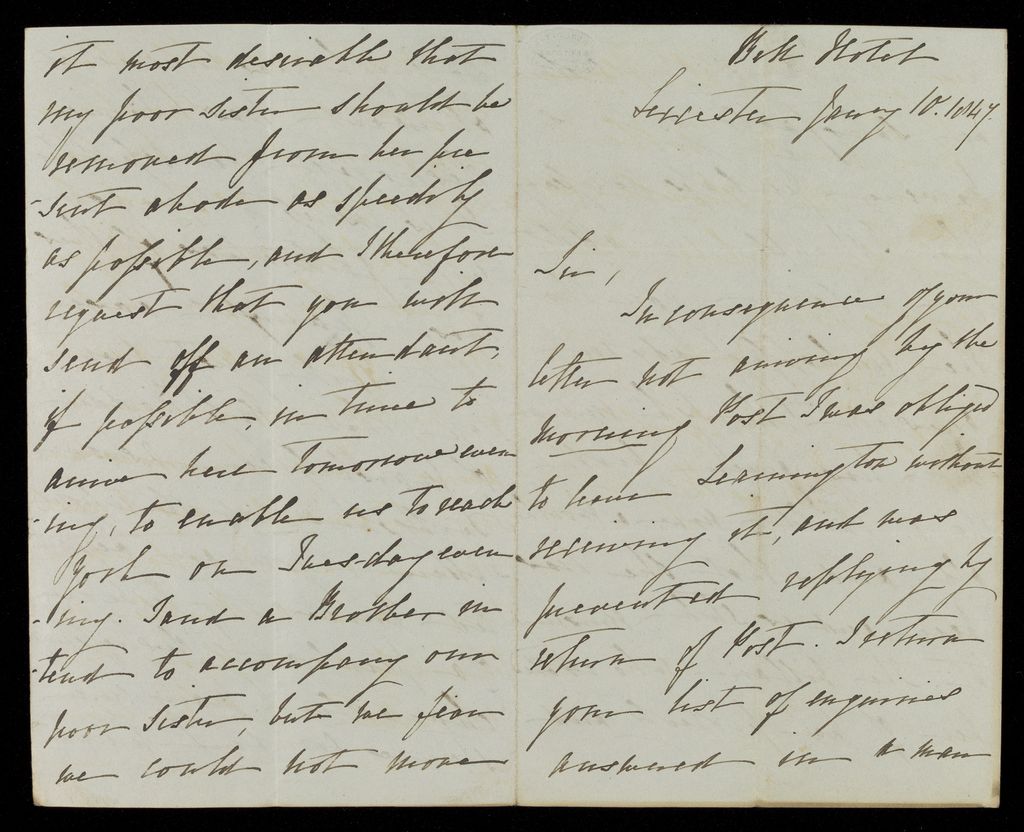 Bell Hotel
Leicester Jany 10. 1847.
Sir,
In consequence of your
letter not arriving by the
morning Post I was obliged
to leave Leamington without
receiving it, and was
prevented replying by
return of Post. I return
your list of enquiries
answered in a man
it most desirable that
my poor sister should be
removed from her pre
-sent abode as speedily
as possible, and I therefore
request that you will
send off an attendant,
if possible, in time to
arrive here tomorrow even
-ing, to enable us to reach
York on Tuesday even
-ing. I and a Brother in
-tend to accompany our
poor sister, but we fear
we could not move